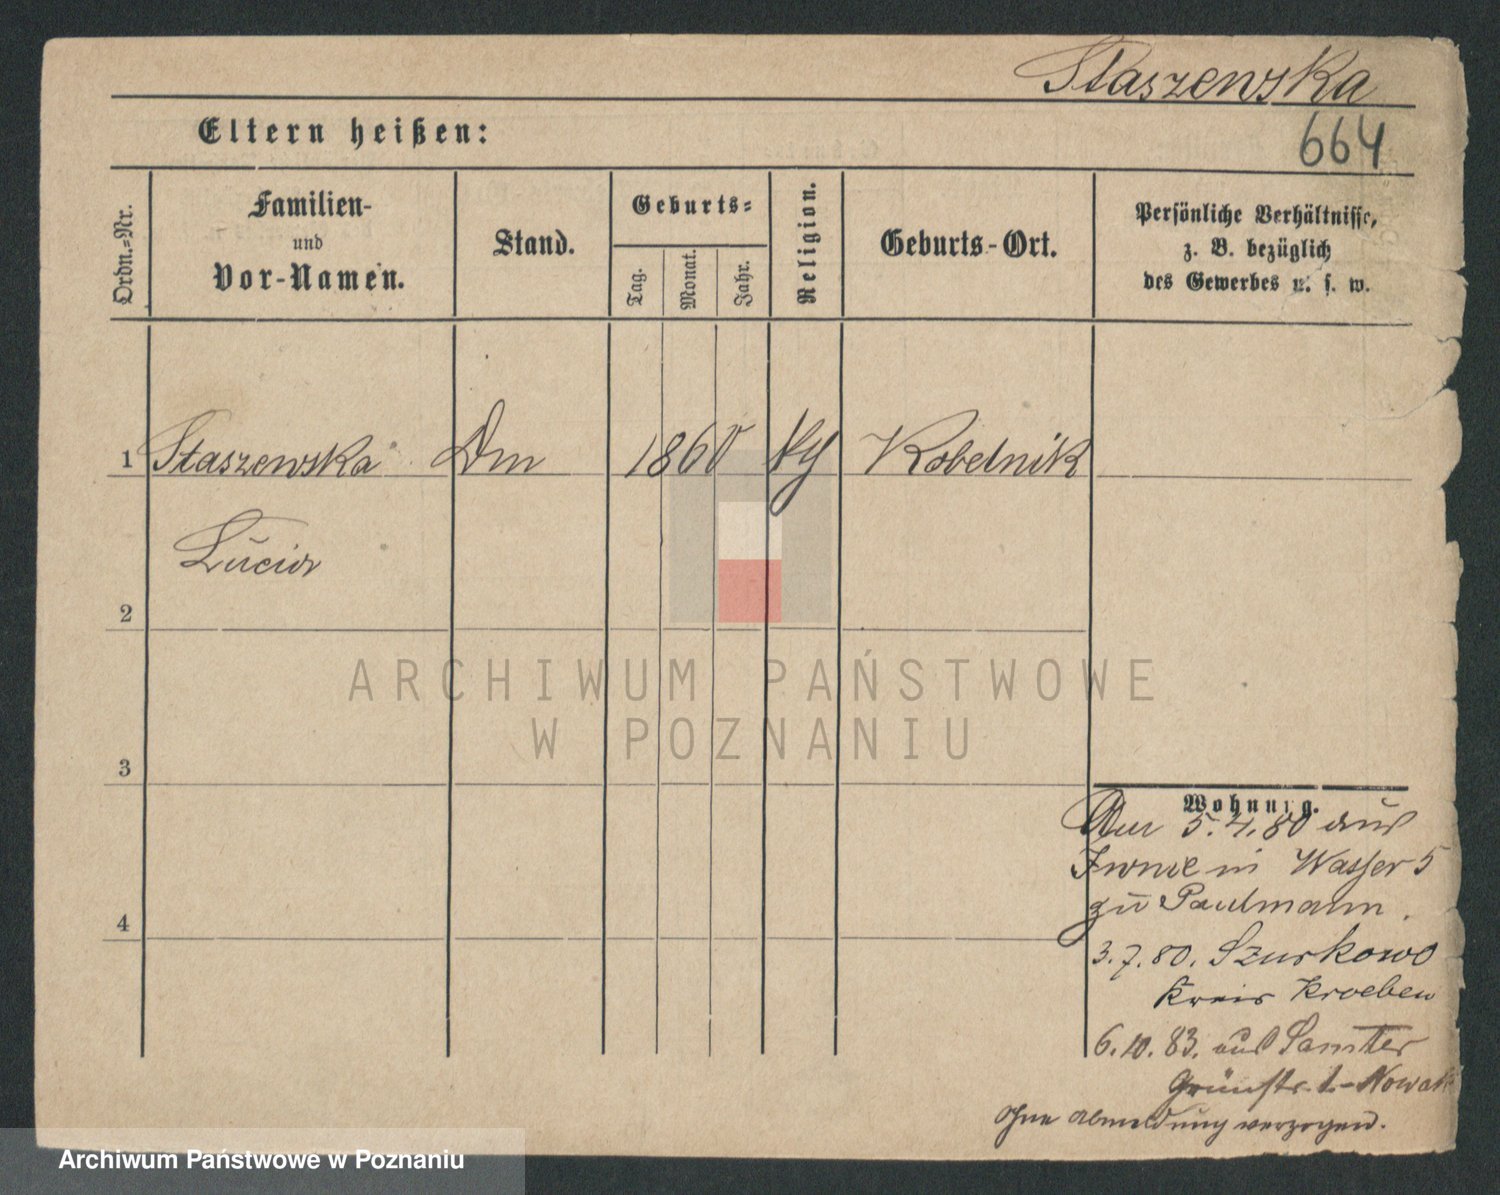 Staszewska
664
Eltern heißen:
Ordn.-Nr.
Familien-
und
Vor-Namen.
Stand.
Geburts-
Tag.
Monat.
Jahr.
Religion.
Geburts-Ort.
Persönliche Verhältnisse,
z. B. bezüglich
des Gewerbes u. s. w.
1 Staszewska Dm 1860 Kobelnik
Lucia
2
3
4
Wohnung.
5.4.80 aus
in Wasser 5
zu Paulmann.
3.7.80. Szurkowo
Kreis Kroeben
6.10.83. aus Samter
Grünstr. 1 - Nowak
ohne Abmeldung verzogen.
ARCHIWUM PAŃSTWOWE
W POZNANIU
Archiwum Państwowe w Poznaniu